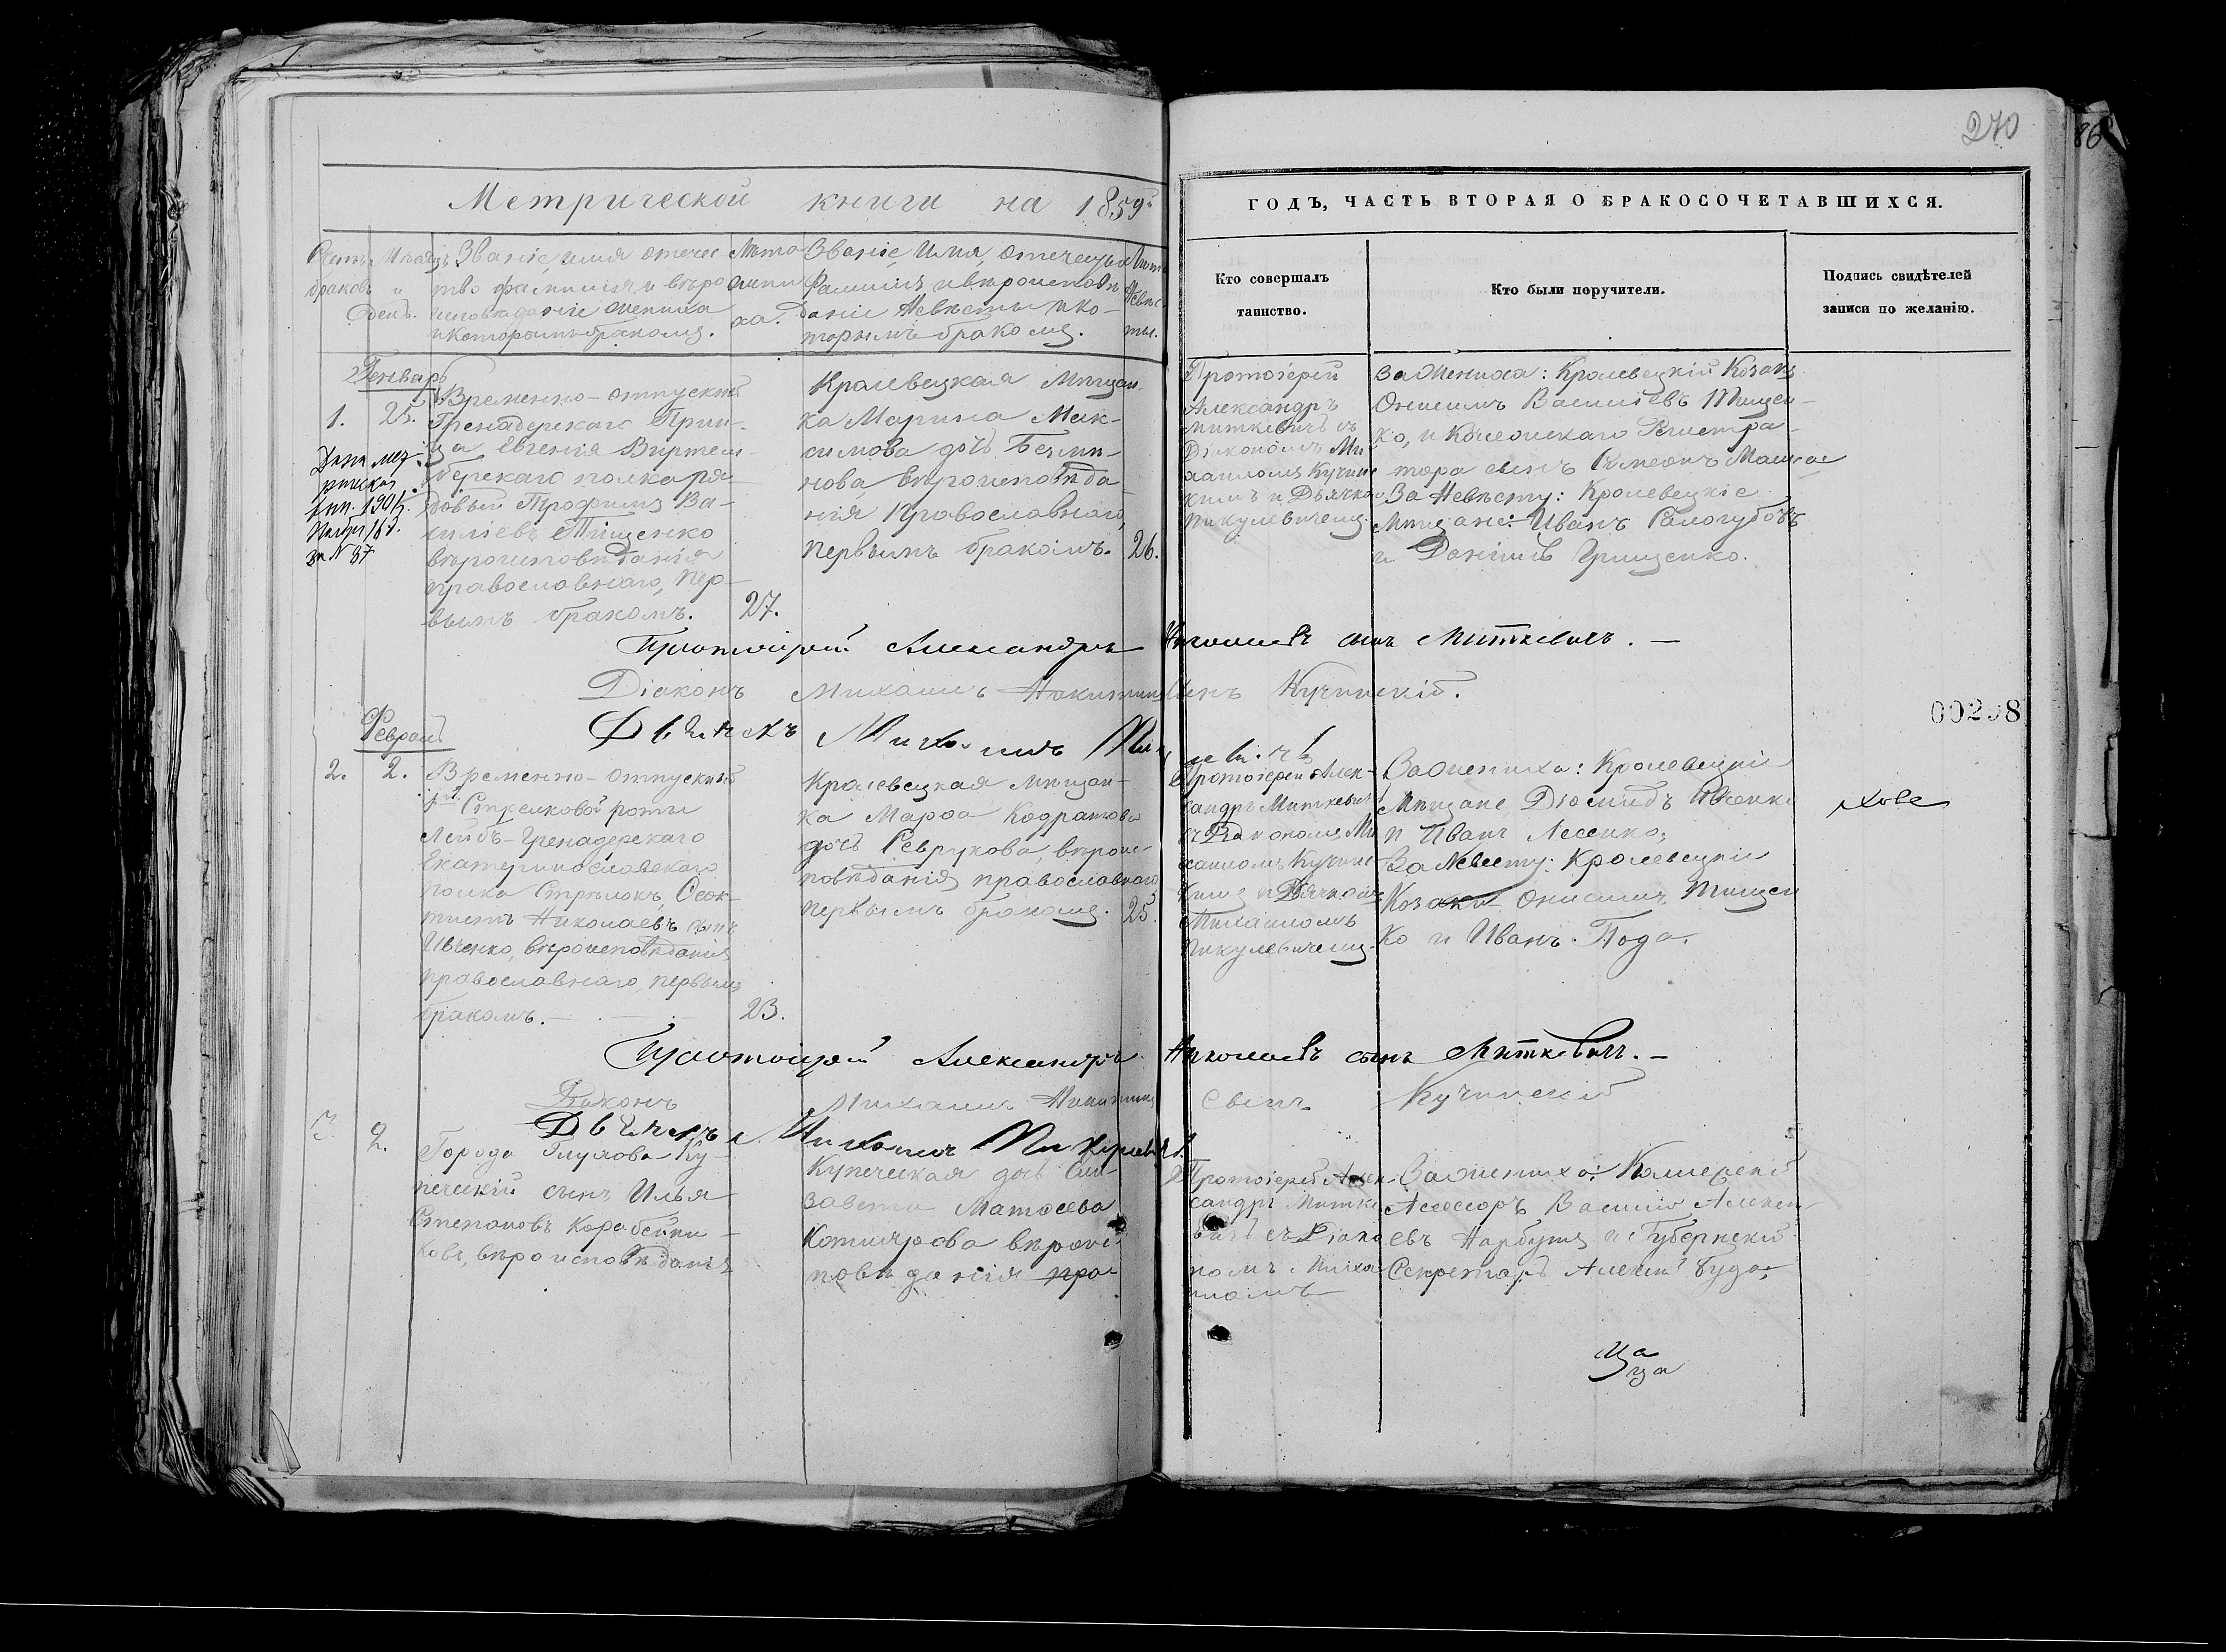 270
86
Метрической книги на 1859й
ГОДЪ, ЧАСТЬ ВТОРАЯ О БРАКОСОЧЕТАВШИХСЯ.
Счетъ браковъ
Мѣсяцъ и день.
Званіе, имя отчес
тво фамилия и вѣро
исповѣданіе жениха
и которымъ бракомъ.
Лѣта
жени
ха.
Званіе, Имя, отчество
Фамилія и вѣроисповѣ
даніе Невѣсты и ко-
торымъ бракомъ.
Лѣта
Невѣс
ты.
Кто совершалъ
таинство.
Кто были поручители.
Подпись свидѣтелей
записи по желанію.
Генварь
1. 25.
Временно-отпускной
Гренадерскаго Прин-
ца Евгенія Виртем-
бергскаго полка ря-
довый Трофимъ Ва-
силіевъ Тищенко
вѣроисповѣданія
православнаго, пер-
вымъ бракомъ. 27.
за № 87
Кролевецкая Мѣщан-
ка Марина Мак-
симова дочь
нова, вѣроисповѣда-
нія Православнаго,
первымъ бракомъ. 26.
Протоіерей
Александръ
Миткевичъ съ
Діакономъ Ми
хаиломъ Кучинс
кимъ и Дьячкомъ
Пикулевичемъ.
За Жениха: Кролевецкій Козакъ
Онисимъ Василіевъ Тищен-
ко, и Колежскаго Регистра-
тора сынъ Симеонъ
За Невѣсту: Кролевецкіе
Мѣщане: Иванъ
и Даніилъ Грищенко.
Протоіерей Александръ Николаевъ сынъ Миткевичъ.
Діаконъ Михаилъ Никитинъ сынъ Кучинскій.
Дьячекъ Михаилъ Пикулевичъ
00208
Февраль
2. 2.
Временно-отпускной
Стрелковой роты
Лейбъ-Гренадерскаго
Екатеринославскаго
полка Стрѣлокъ, Ѳеок-
тистъ Николаевъ сынъ
Ивченко, вѣроисповѣданія
православнаго, первымъ
бракомъ. 23.
Кролевецкая мѣщан-
ка Марѳа Кодратова
дочь Реврукова, вѣроис-
повѣданія православнаго
первымъ бракомъ. 25.
Протоіерей Алек-
сандръ Миткевичъ
съ Діакономъ Ми
хаиломъ Кучинс-
кимъ и Дьячкомъ
Михаиломъ
Пикулевичемъ.
За жениха: Кролевецкіе
Мѣщане, Діомидъ Ивченко
и Иванъ Лесенко;
За Невесту: Кролевецкіе
Козаки Онисимъ Тищен
ко и Иванъ Пода.
Протоіерей Александръ Николаевъ сынъ Миткевичъ.
Діаконъ Михаилъ Никитинъ сынъ Кучинскій
Дьячекъ Михаилъ Пикулевичъ
3. 2.
Города Глухова Ку-
печескій сынъ Илья
Степановъ Коробейни-
ковъ, вѣроисповѣданія
Купеческая дочь Ели
завета Матѳеева
вѣроис
повѣданія пра
Протоіерей Алек-
сандръ Митке
вичъ съ Діако
номъ Миха
иломъ
За жениха: Колежскій
Асессоръ Василій Алексѣ-
евъ Нарбутъ и Губернскій
Секретарь Алексѣй Буда;